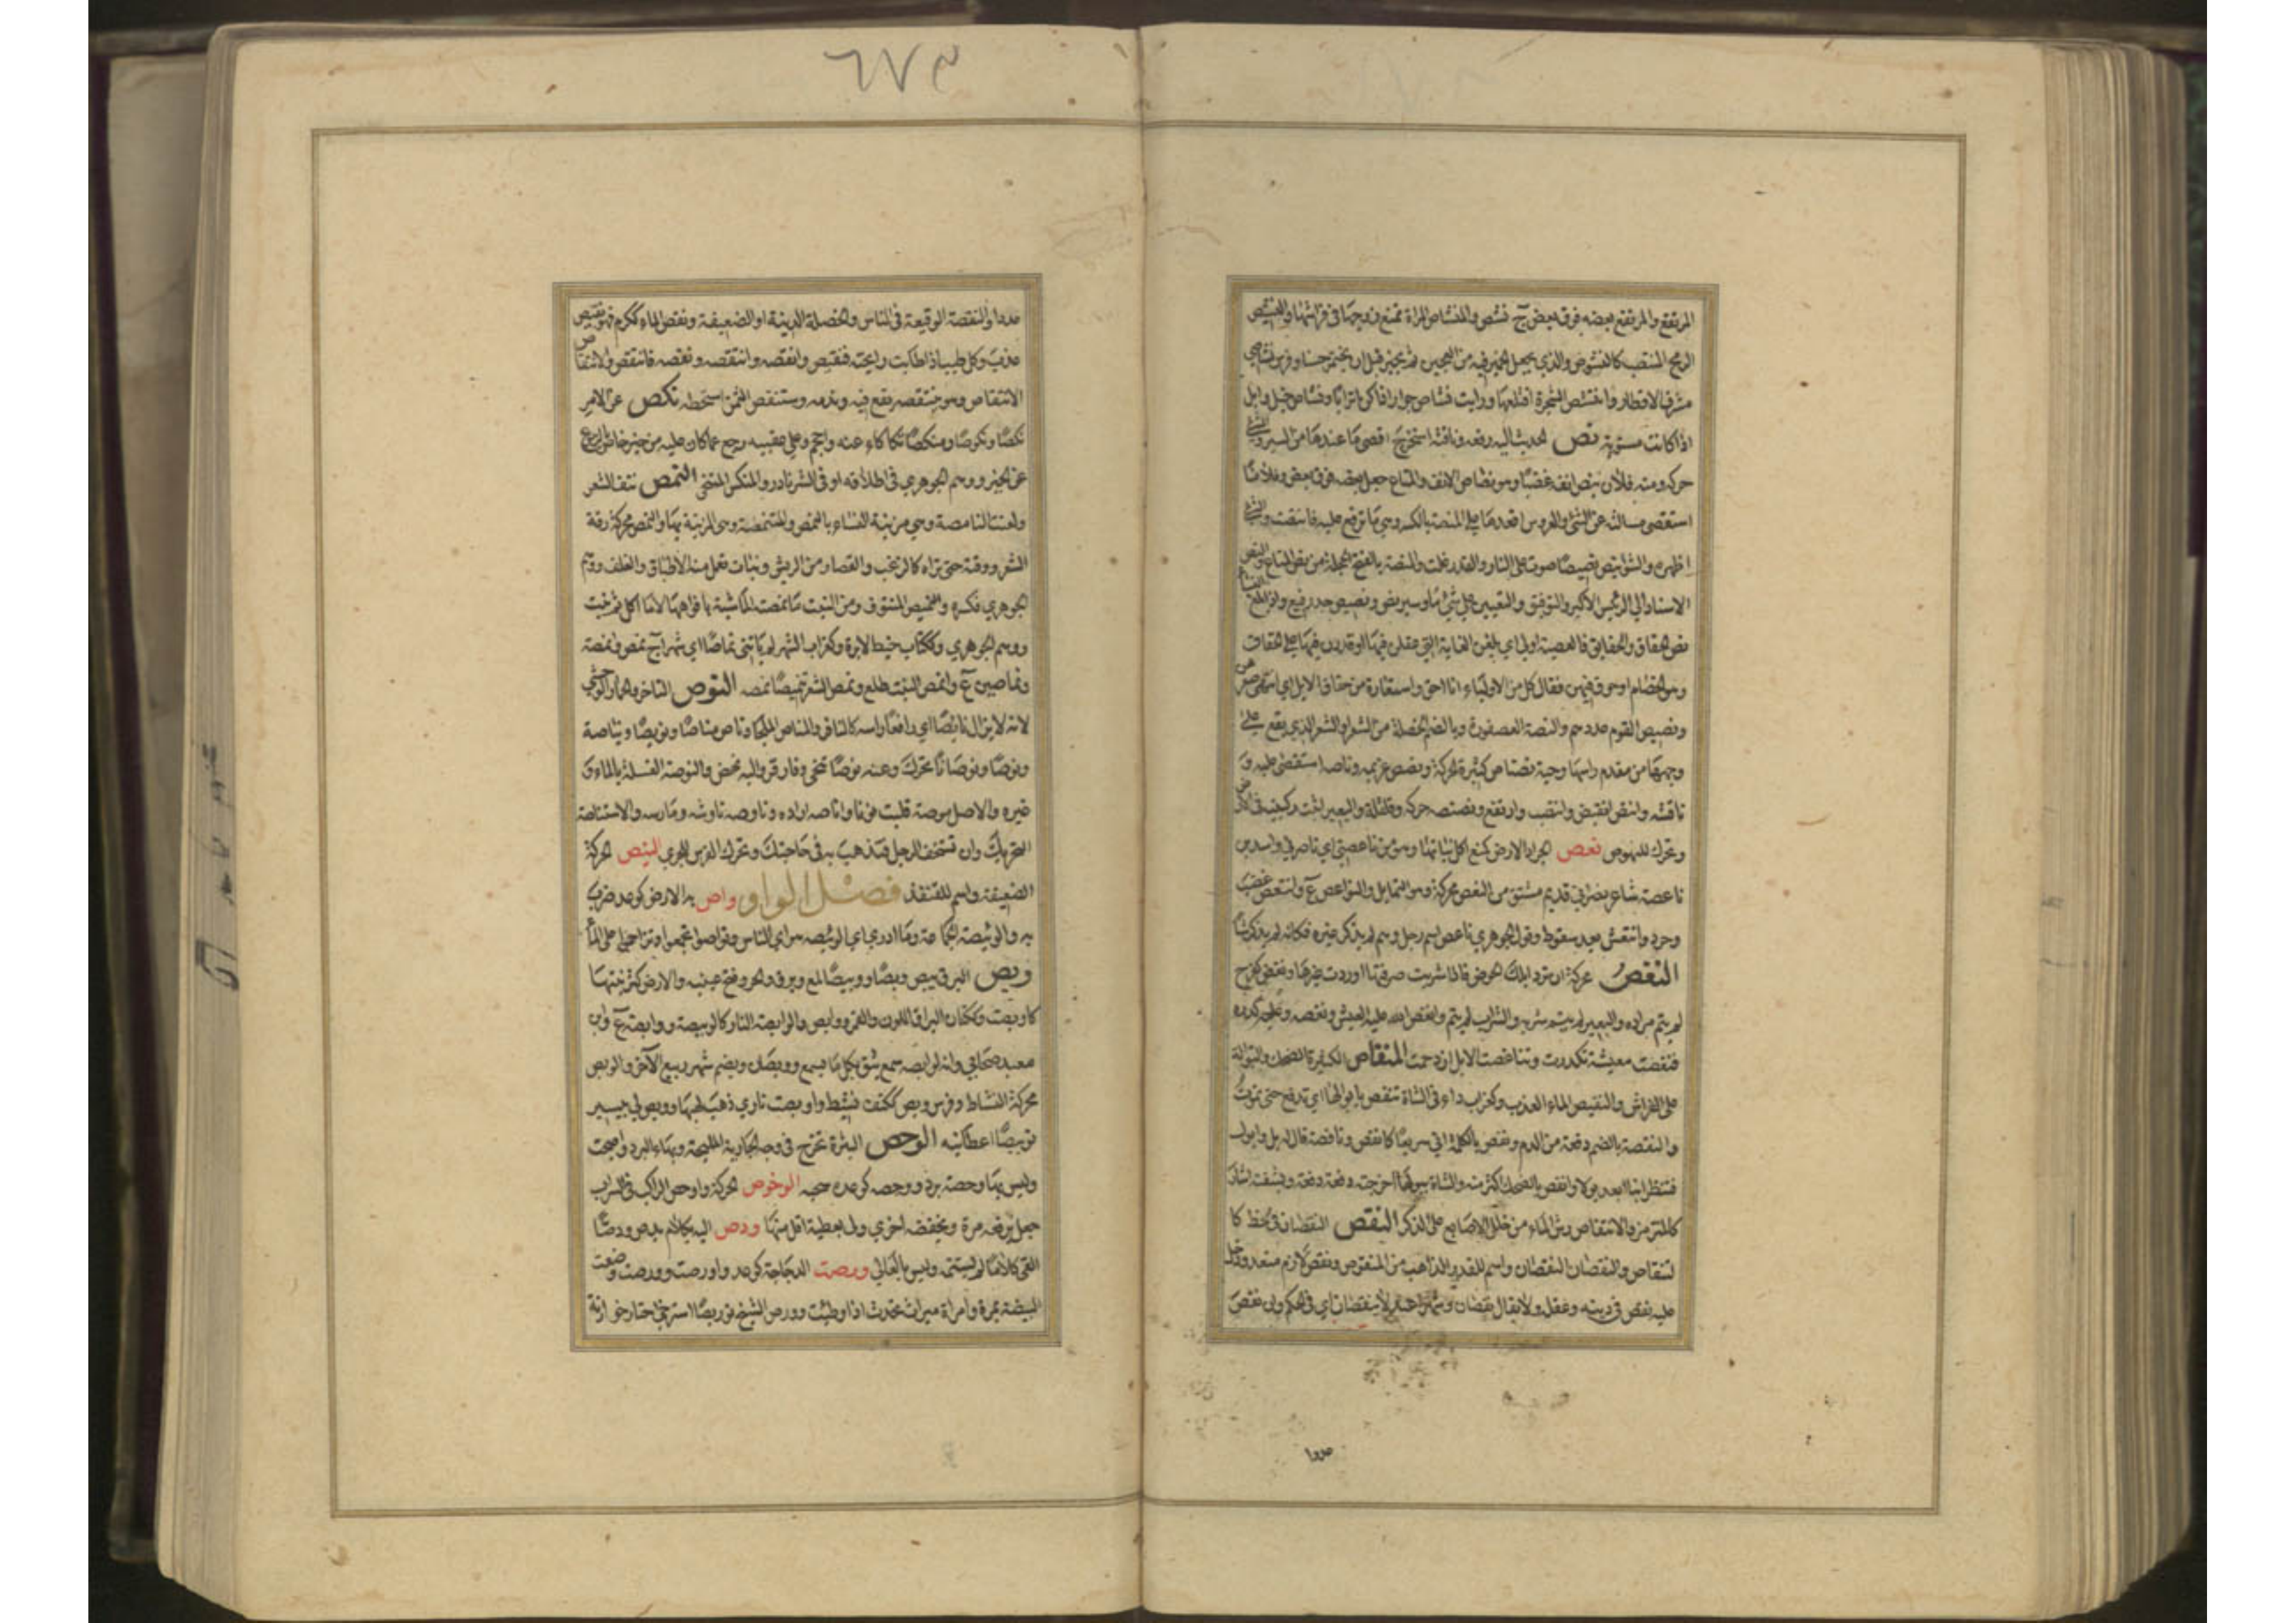 المرتفع والمرتفع بعضه فوق بعض ج نشص والمنشاص المراة تمنع زوجها في فراشها والمنتشص
الرمح المنتصب كالنشوص والذي يجعل الخمير فيه من العجين ثم يخبز قبل ان يختمر حسنا وفرس نشاصي
مشرف الاقطار وانتشص الشجرة اقتلعها ورايت نشاص جوار اذا كن اترابا ونشاص خيل وابل
اذا كانت مستوية نص الحديث اليه رفعه وناقته استخرج اقصى ما عندها من السير والشئ
حركه ومنه فلان ينص انفه غضبا وهو نصاص الانف والمتاع جعل بعضه فوق بعض وفلانا
استقصى مسالته عن الشئ والعروس اقعدها على المنصة بالكسر وهي ما ترفع عليه فانتصت والشئ
اظهره والشواء ينص نصيصا صوت على النار والقدر غلت والمنصة بالفتح الحجلة من نص المتاع والنص
الاسناد الى الرئيس الاكبر والتوقيف والتعيين على شئ ما وسير نص ونصيص جد رفيع واذا بلغ النساء
نص الحقاق والحقايق فالعصبة اولى اي بلغن الغاية التي عقلن فيها او قدرن فيها على الحقاق
وهو الخصام او حوق فيهن فقال كل من الاولياء انا احق واستعارة من حقاق الابل اي انتهى صغرهن
ونصيص القوم عددهم والنصة العصفورة وبالضم الخصلة من الشعر او الشعر الذي يقع على
وجهها من مقدم راسها وحية نصناص كثيرة الحركة ونصص غريمه وناصه استقصى عليه و
ناقشه وانتص انقبض وانتصب وارتفع ونصنصه حركه وقلقله والبعير اثبت ركبتيه في الارض
وتحرك للنهوض نعص الجراد الارض كمنع اكل نباتها وهو من ناعصتي اي ناصرتي واسد بن
ناعصة شاعر نصراني قديم مشتق من النعص محركة وهو التمايل والنواعص ع وانتعص غضب
وحرد وانتعش بعد سقوط وقول الجوهري ناعص اسم رجل وهم لم يذكر غيره فكانه لم يذكر شيا
النغص محركة ان تورد ابلك الحوض فاذا شربت صرفتها واوردت غيرها ونغص كفرح
لم يتم مراده والبعير لم يتم شربه والشراب لم يتم وانغص الله عليه العيش ونغصه وعليه كدره
فتنغصت معيشته تكدرت وتناغصت الابل ازدحمت المنفاص الكثيرة الضحك والبوالة
على الفراش والنفيص الماء العذب وكغراب داء في الشاة تنفص بابوالها اي تدفع حتى تموت
والنفصة بالضم دفعة من الدم ونفص بالكلمة اتى سريعا كانفص ونافصه قال له بل وابول
فننظر اينا ابعد بولا وانفص بالضحك اكثر منه والشاة ببولها اخرجته دفعة دفعة وبشفته اشار
كالمترمز والانتفاص رش الماء من خلل الاصابع على الذكر النقص النقصان في الحظ كا
لتنقاص والنقصان النقصان واسم للقدر الذاهب من المنقوص ونقص لازم متعد ودخل
عليه نقص في دينه وعقله ولا يقال نقصان وشهرا عيد لا ينقصان اي في الحكم وان نقص
عددا
عددا والمنقصة الوقيعة في الناس والخصلة الدنية او الضعيفة ونقص الماء ككرم فهو نقيص
عذب وكل طيب اذا طابت رايحته فنقيص وانقصه وانتقصه ونقصه فانتقص والانتقاص
الانتقاص وهو ينتقصه يقع فيه ويذمه واستنقص الثمن استحطه نكص عن الامر
نكصا ونكوصا ومنكصا تكاكا عنه واحجم وعلى عقبيه رجع عما كان عليه من خير خاص بالرجوع
عن الخير ووهم الجوهري في اطلاقه او في الشر نادر والمنكص المتنحى النمص نتف الشعر
ولعنت النامصة وهي مزينة النساء بالنمص والمتنمصة وهي المزينة بها والنمص محركة رقة
الشعر ودقته حتى تراه كالزغب والقصار من الريش ونبات تعمل منه الاطباق والغلف ووهم
الجوهري فكسره والنميص المنتوف ومن النبت ما نمصته الماشية بافواهها لا ما اكل ثم نبت
ووهم الجوهري وككتاب خيط الابرة وكغراب الشهر لم ياتني نماصا اي شهرا ج نمص وانمصة
ونماصين ع وانمص النبت طلع ونمص الشعر تنميصا نمصه النوص التاخر والحمار الوحشي
لانه لا يزال نايصا اي رافعا راسه كالنافر والمناص الملجا وناص مناصا ونويصا ونياصة
ونوصا ونوصانا تحرك وعنه نوصا تنحى وفارقه واليه نهض والنوصة الغسلة بالماء و
غيره والاصل موصة قلبت نونا واناصه اراده وناوصه ناوشه ومارسه والاستناصة
التحريك وان تستخف الرجل فتذهب به في حاجتك وتحرك الفرس للجري النيص الحركة
الضعيفة واسم للقنفذ فصل الواو واص به الارض كوعد ضرب
به والوئيصة الجماعة وما ادري اي الوئيصة هو اي الناس وتواصوا تجمعوا وتزاحموا على الماء
وبص البرق يبص وبصا ووبيصا لمع وبرق والجرو فتح عينيه والارض كثر نبتها
كاوبصت وككتان البراق اللون والقمر ووابص والوابصة النار كالوبيصة ووابصة ع وابن
معبد صحابي وانه لوابصة سمع يثق بكل ما يسمع ووبصان ويضم شهر ربيع الآخر والوبص
محركة النشاط وفرس وبص ككتف نشيط واوبصت ناري ذهب لهبها ووبص لي بيسير
توبيصا اعطانيه الوحص البثرة تخرج في وجه الجارية المليحة وبهاء البرد واصبحت
وليس بها وحصة برد ووحصه كوعده سحبه الوخوص الحركة واوخص الراكب في السراب
جعل يرفعه مرة ويخفضه اخرى ولي بعطية اقل منها ودص اليه بكلام يدص ودصا
القى كلاما لم يستتمه وليس بالعالي ورصت الدجاجة كوعد واورصت وورصت وضعت
البيضة بمرة وامراة ميراص تحدث اذا وطئت وورص الشيخ توريصا استرخى حتار خورانه